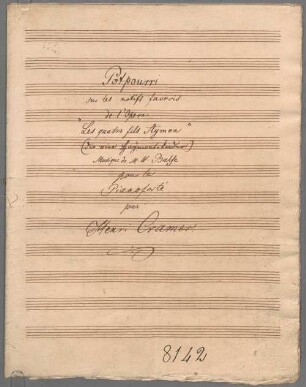 Pôtpourri
sur les motifs favoris
de l'Opera
"Les quatre fils Aymon"
(Die vier Haymonskinder)
Musique de M. W. Balfe
pour le
Pianoforté
par
Henri Cramer.
8142